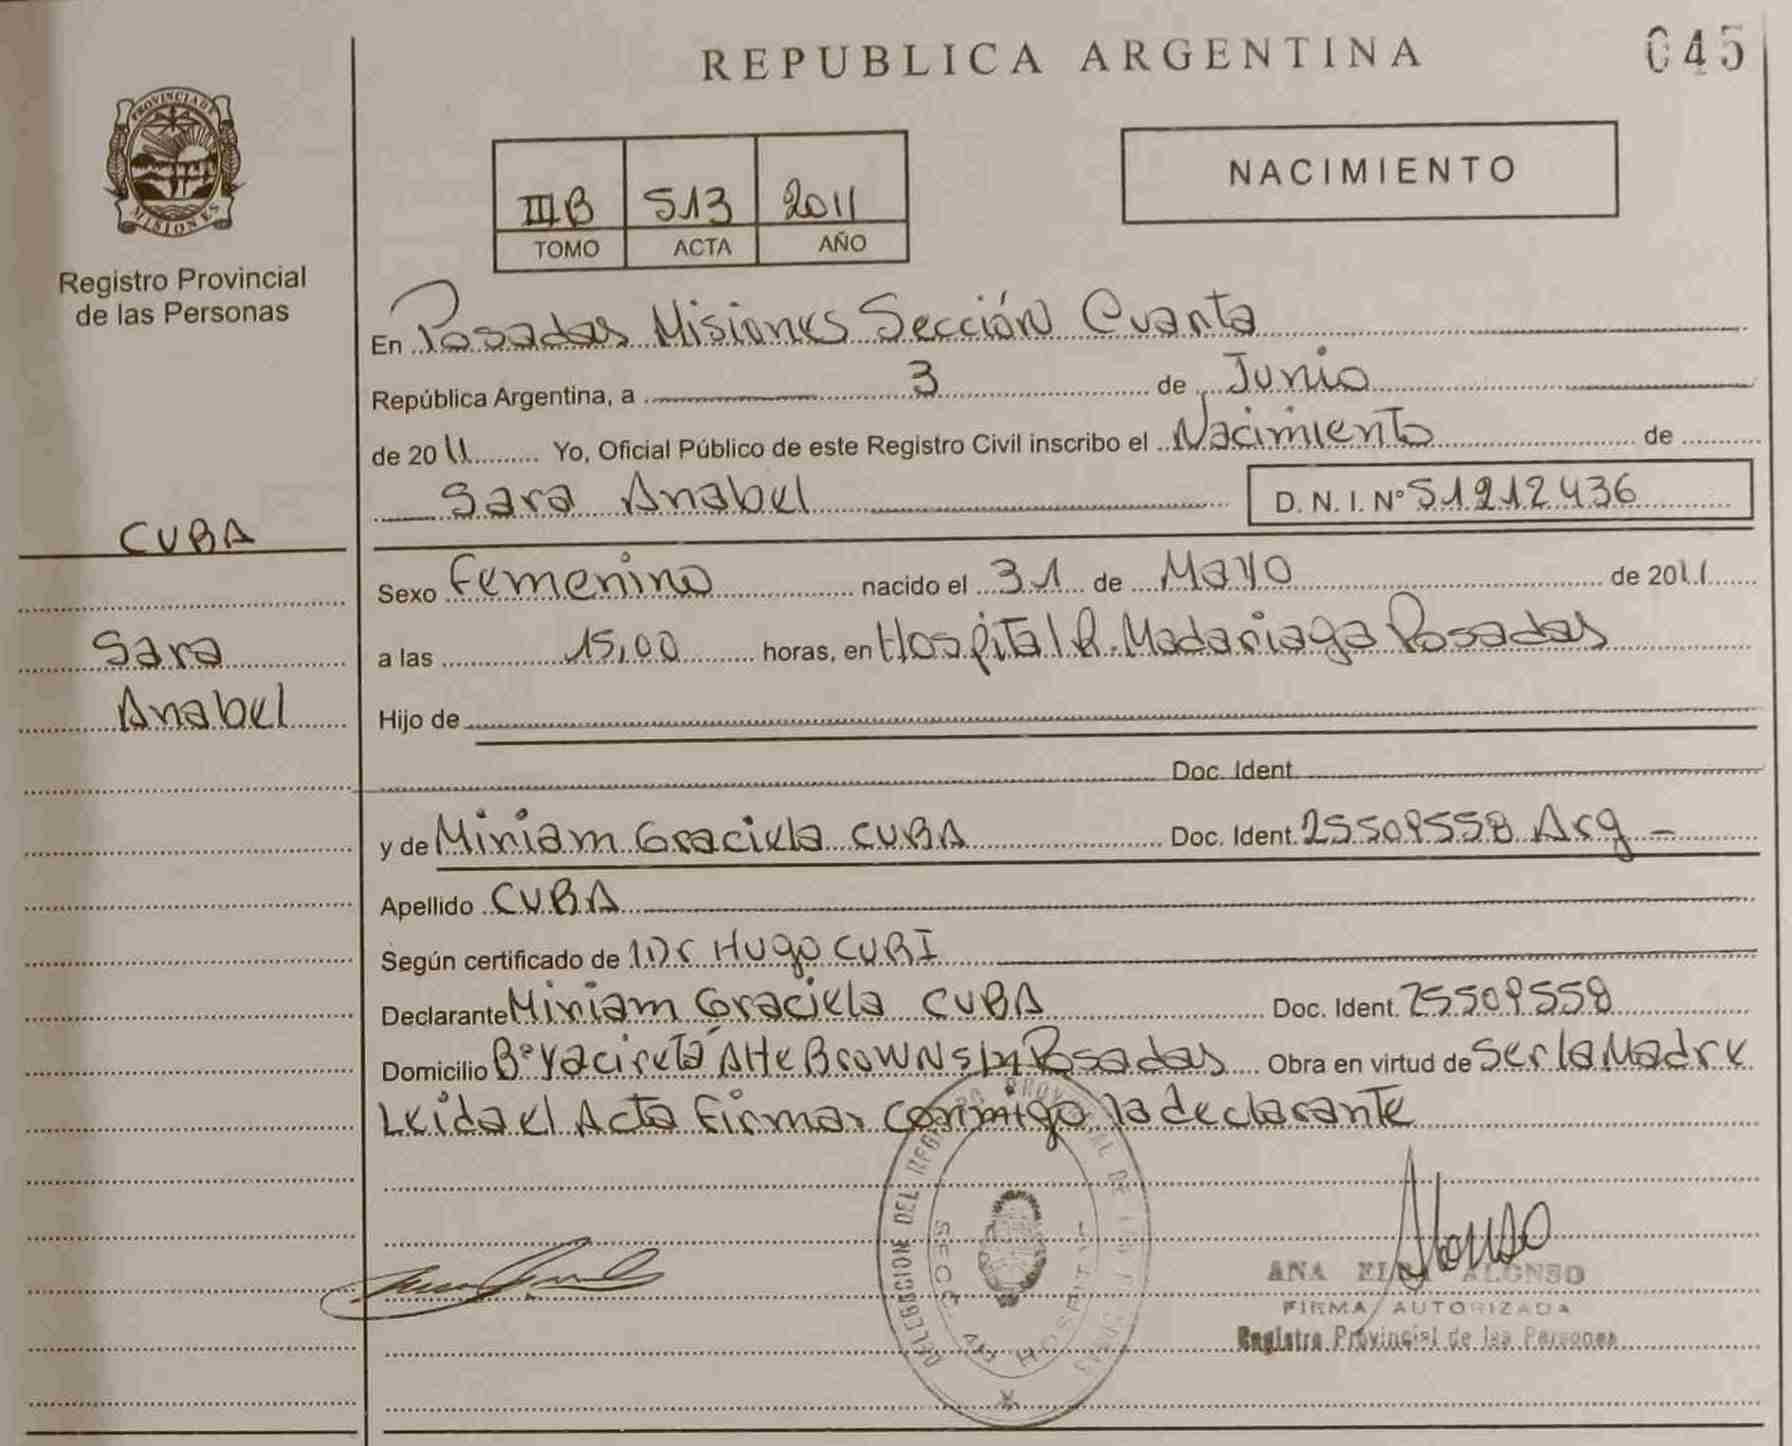 REPUBLICA ARGENTINA
045
PROVINCIA DE MISIONES
Registro Provincial
de las Personas
NACIMIENTO
III B 513 2011
TOMO ACTA AÑO
En Posadas Misiones Sección Cuarta
República Argentina, a 3 de Junio
de 2011 Yo, Oficial Público de este Registro Civil inscribo el Nacimiento de
Sara Anabel D. N. I. Nº 51212436
CUBA
Sara
Anabel
Sexo Femenino nacido el 31 de Mayo de 2011
a las 15,00 horas, en Hospital R. Madariaga Posadas
Hijo de
Doc. Ident.
y de Miriam Graciela CUBA Doc. Ident. 25509558 Arg -
Apellido CUBA
Según certificado de Dr Hugo CURI
Declarante Miriam Graciela CUBA Doc. Ident. 25509558
Domicilio Bº Yacireta Alte Brown s/n Posadas Obra en virtud de Ser la Madre
Leida el Acta Firma conmigo la declarante
DELEGACION DEL REGISTRO PROVINCIAL DE LAS PERSONAS
SECC. 4ta HOSPITAL
Alonso
ANA ELBA ALONSO
FIRMA AUTORIZADA
Registro Provincial de las Personas